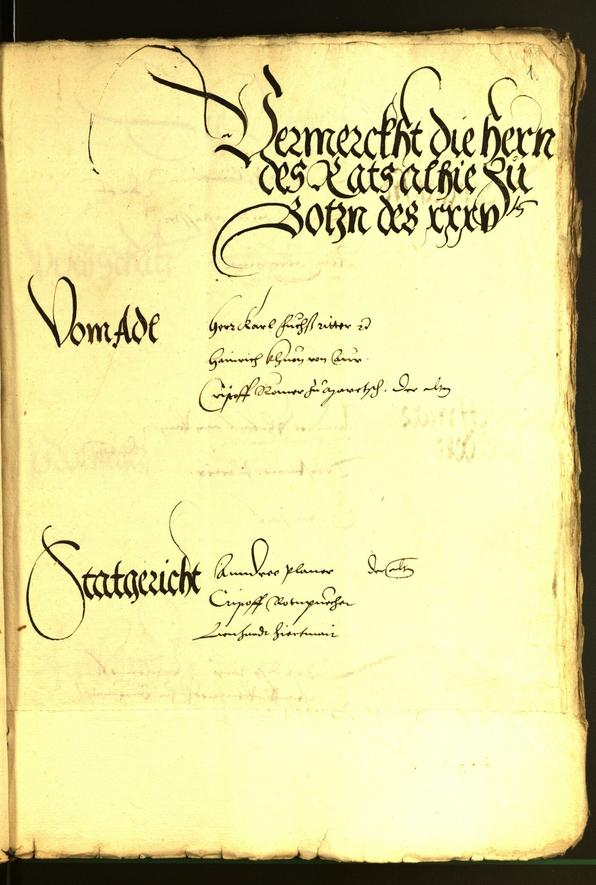 1.
Vermerckht die hern
des Rats alhie zu
Botzn des xxxv ts
Vom Adl
Herr Karl Fuchs ritter
Hainrich Khuen von Aur
Cristoff Römer zu Maretsch. der elter
Statgericht
Anndree Planer der elter
Cristoff Rotnpuecher
Lienhardt Hiertmair